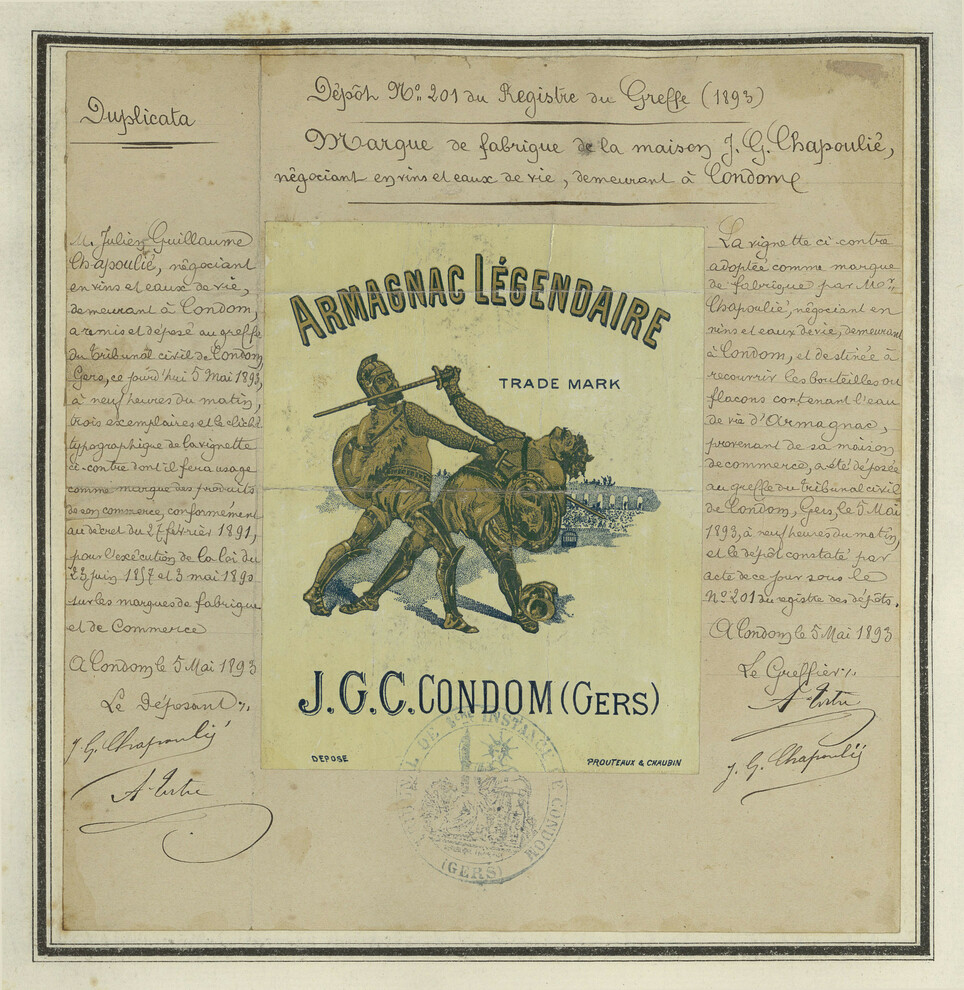 Duplicata
Dépôt Nº. 201 du Registre du Greffe (1893)
Marque de fabrique de la maison J. G. Chapoulié,
négociant en vins et eaux de vie, demeurant à Condom
M. Julien Guillaume
Chapoulié, négociant
en vins et eaux de vie,
demeurant à Condom,
a remis et déposé au greffe
du tribunal civil de Condom,
Gers, ce jourd'hui 5 Mai 1893,
à neuf heures du matin,
trois exemplaires et le cliché
typographique de la vignette
ci-contre dont il fera usage
comme marque des produits
de son commerce, conformément
au décret du 27 février 1891,
pour l'exécution de la loi du
23 juin 1857 et 3 mai 1890
sur les marques de fabrique
et de Commerce
A Condom le 5 Mai 1893
Le Déposant
J. G. Chapoulié
ARMAGNAC LÉGENDAIRE
TRADE MARK
J.G.C. CONDOM (GERS)
DEPOSE
PROUTEAUX & CHAUBIN
TRIBUNAL DE 1ère INSTANCE DE CONDOM
(GERS)
La vignette ci-contre
adoptée comme marque
de fabrique par Mr.
Chapoulié, négociant en
vins et eaux de vie, demeurant
à Condom, et destinée à
recouvrir les bouteilles ou
flacons contenant l'eau
de vie d'Armagnac,
provenant de sa maison
de commerce, a été déposée
au greffe du tribunal civil
de Condom, Gers, le 5 Mai
1893, à neuf heures du matin,
et le dépôt constaté par
acte de ce jour sous le
Nº 201 du registre des dépôts.
A Condom le 5 Mai 1893
Le Greffier
J. G. Chapoulié